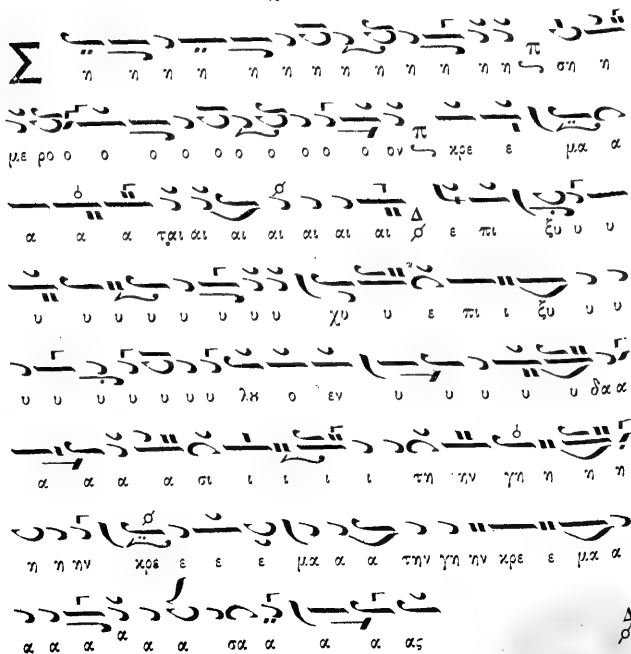 Σ η η η η η η η η η η η η η π ση η
με ρο ο ο ο ο ο ο ο ο ο ο ον π κρε ε μα α
α α α ται αι αι αι αι αι αι Δ ε πι ξυ υ υ
υ υ υ υ υ υ υ υ χυ υ ε πι ι ξυ υ υ
υ υ υ υ υ υ υ λȣ ο εν υ υ υ υ υ δα α
α α α α σι ι ι ι ι τη ην γη η η η
η η ην κρε ε ε ε μα α α την γη ην κρε ε μα α
α α α α α α σα α α α ας Δ